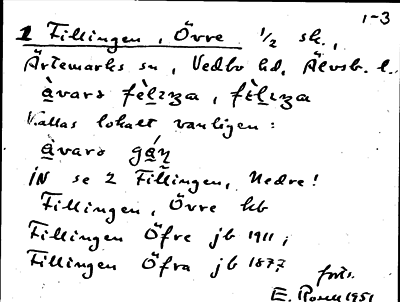 1-3
1 Fillingen, Övre 1/2 sk.,
Ärtemarks sn, Vedbo hd, Älvsb. l.
Kallas lokalt vanligen:
IN se 2 Fillingen, Nedre!
Fillingen, Övre kb
Fillingen Öfre jb 1911;
Fillingen Öfra jb 1877
forts.
E. 1951